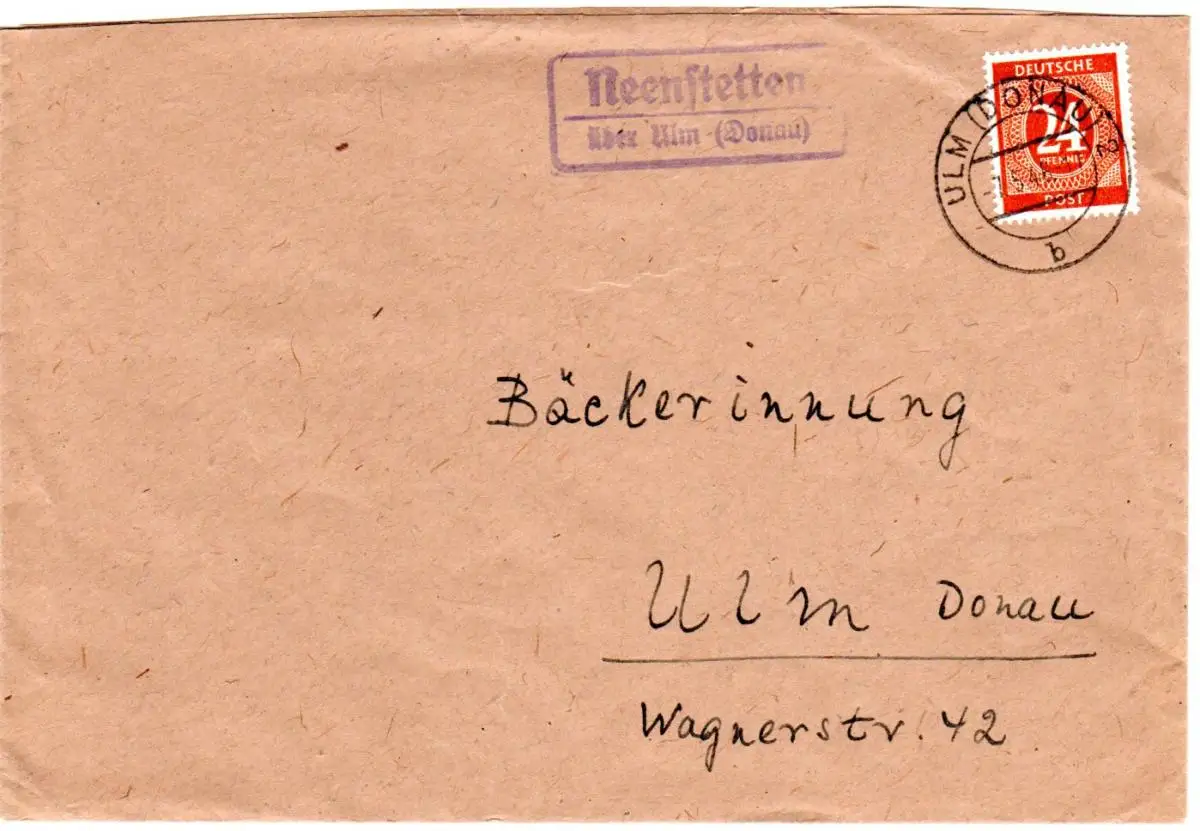 Neenstetten
über Ulm (Donau)
DEUTSCHE
24
PFENNIG
POST
ULM (DONAU)
b
Bäckerinnung
Ulm Donau
Wagnerstr. 42